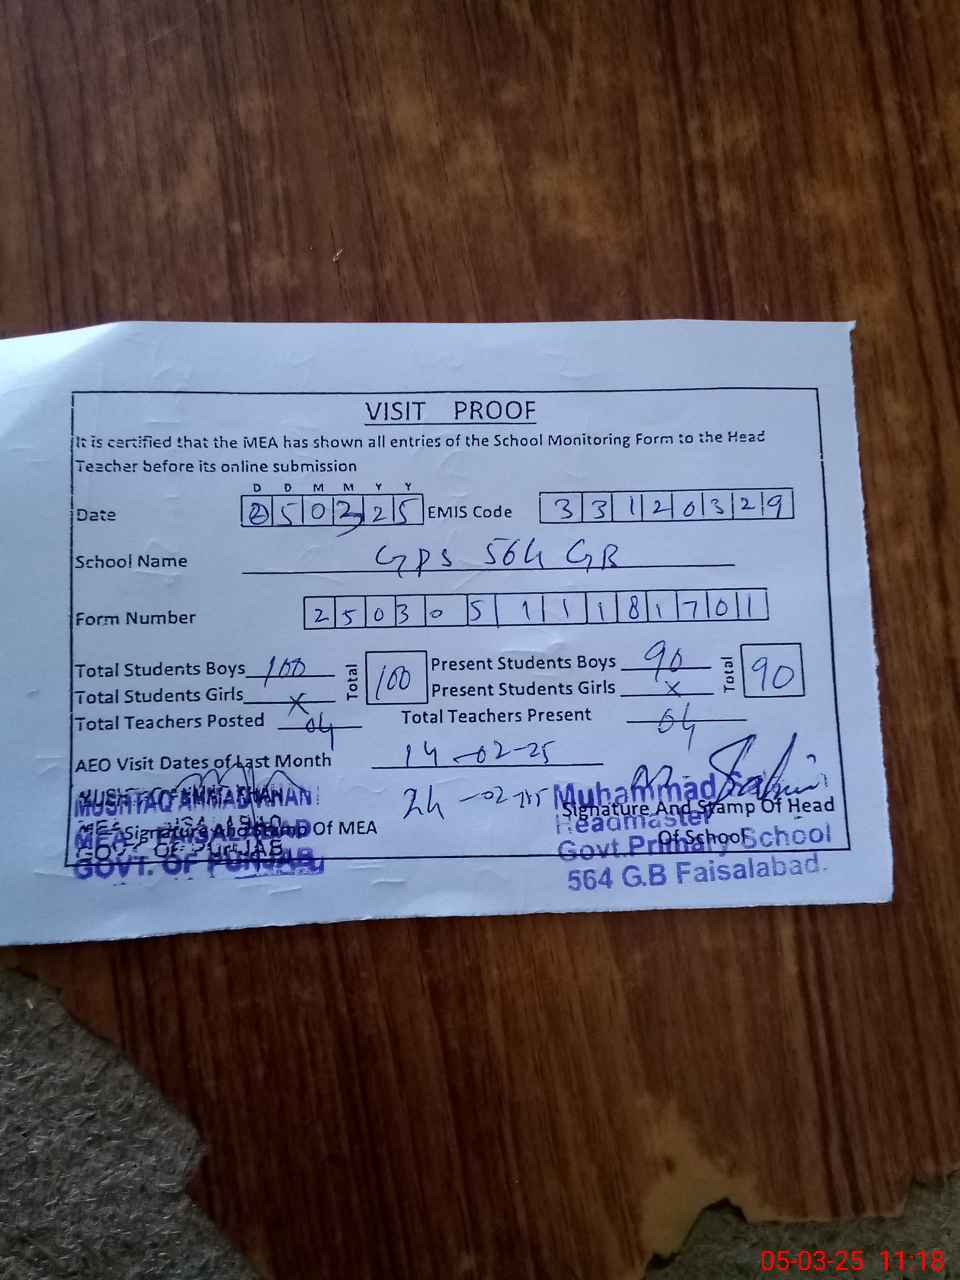 VISIT PROOF
It is certified that the MEA has shown all entries of the School Monitoring Form to the Head
Teacher before its online submission
D D M M Y Y
Date 050325 EMIS Code 33120329
School Name GPS 564 GB
Form Number 25030511181701
Total Students Boys 100 Total 100 Present Students Boys 90 Total 90
Total Students Girls X Present Students Girls X
Total Teachers Posted 04 Total Teachers Present 04
AEO Visit Dates of Last Month 14-02-25
24-02-25
MUSHTAQ AHMAD
Signature And Stamp Of MEA
GOVT. OF PUNJAB
Muhammad
Signature And Stamp Of Head
Of School
Headmaster
Govt.Primary School
564 G.B Faisalabad.
05-03-25 11:18